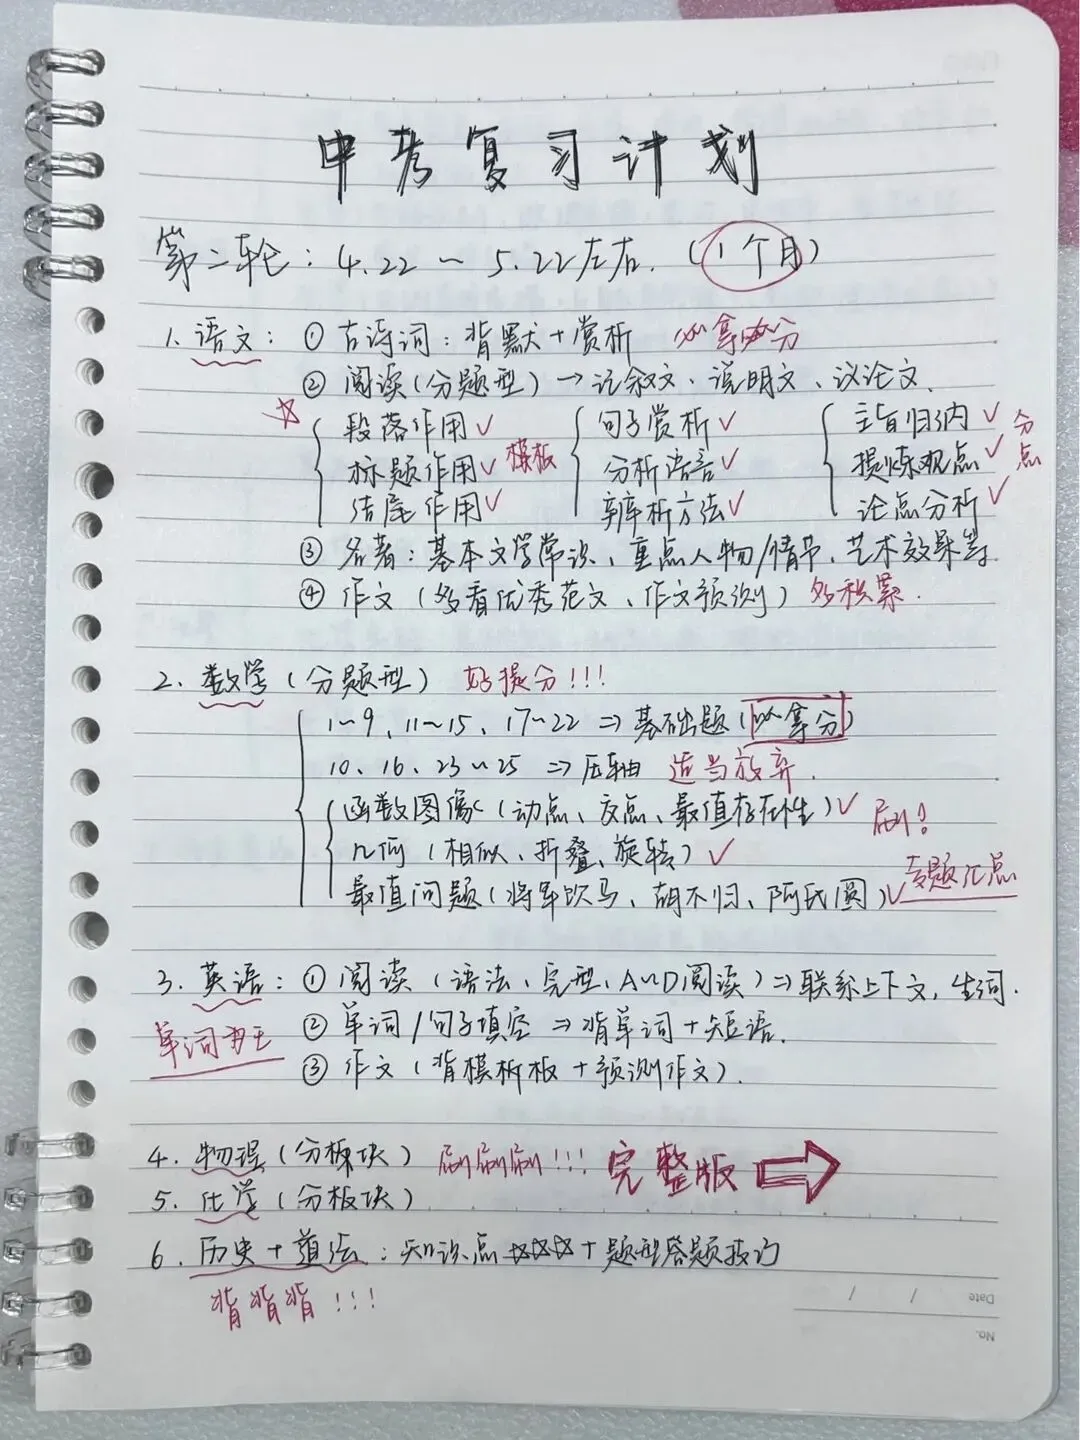 中考复习计划
第二轮：4.22～5.22左右.（1个月）
1. 语文：① 古诗词：背默+赏析 必拿分
② 阅读（分题型）→记叙文、说明文、议论文.
☆ 段落作用✓ 句子赏析✓ 主旨归纳✓ 分
标题作用✓ 模板 分析语言✓ 提炼观点✓ 点
结尾作用✓ 辨析方法✓ 论点分析✓
③ 名著：基本文学常识、重点人物/情节、艺术效果等
④ 作文（多看优秀范文、作文预测）多积累.
2. 数学（分题型） 好提分!!!
1～9、11～15、17～22 ⇒ 基础题（必拿分）
10、16、23～25 ⇒ 压轴 适当放弃.
函数图像（动点、交点、最值存在性）✓ 刷!
几何（相似、折叠、旋转）✓
最值问题（将军饮马、胡不归、阿氏圆）✓ 专题汇总
3. 英语：① 阅读（语法、完型、A~D阅读）⇒联系上下文，生词.
单词为王 ② 单词/句子填空 ⇒ 背单词+短语.
③ 作文（背模板+预测作文）.
4. 物理（分板块） 刷刷刷!!! 完整版 ⇨
5. 化学（分板块）
6. 历史+道法：知识点☆☆☆+题型答题技巧
背背背!!!
Date / /
No.